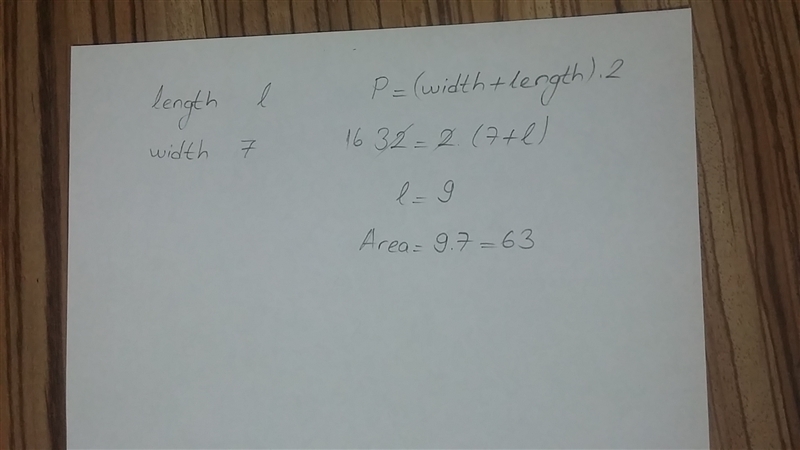 length l
width 7
P = (width + length) . 2
16 32 = 2 . (7 + l)
l = 9
Area = 9.7 = 63